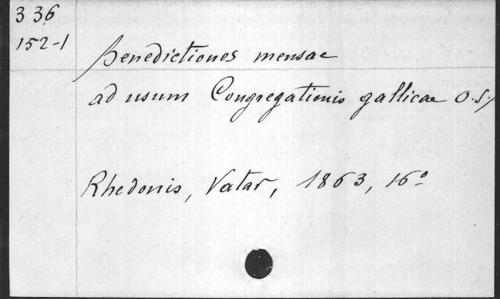 336
152-1
Benedictiones mensae
ad usum Congregationis gallicae O.S.
Rhedonis, Vatar, 1863, 16º